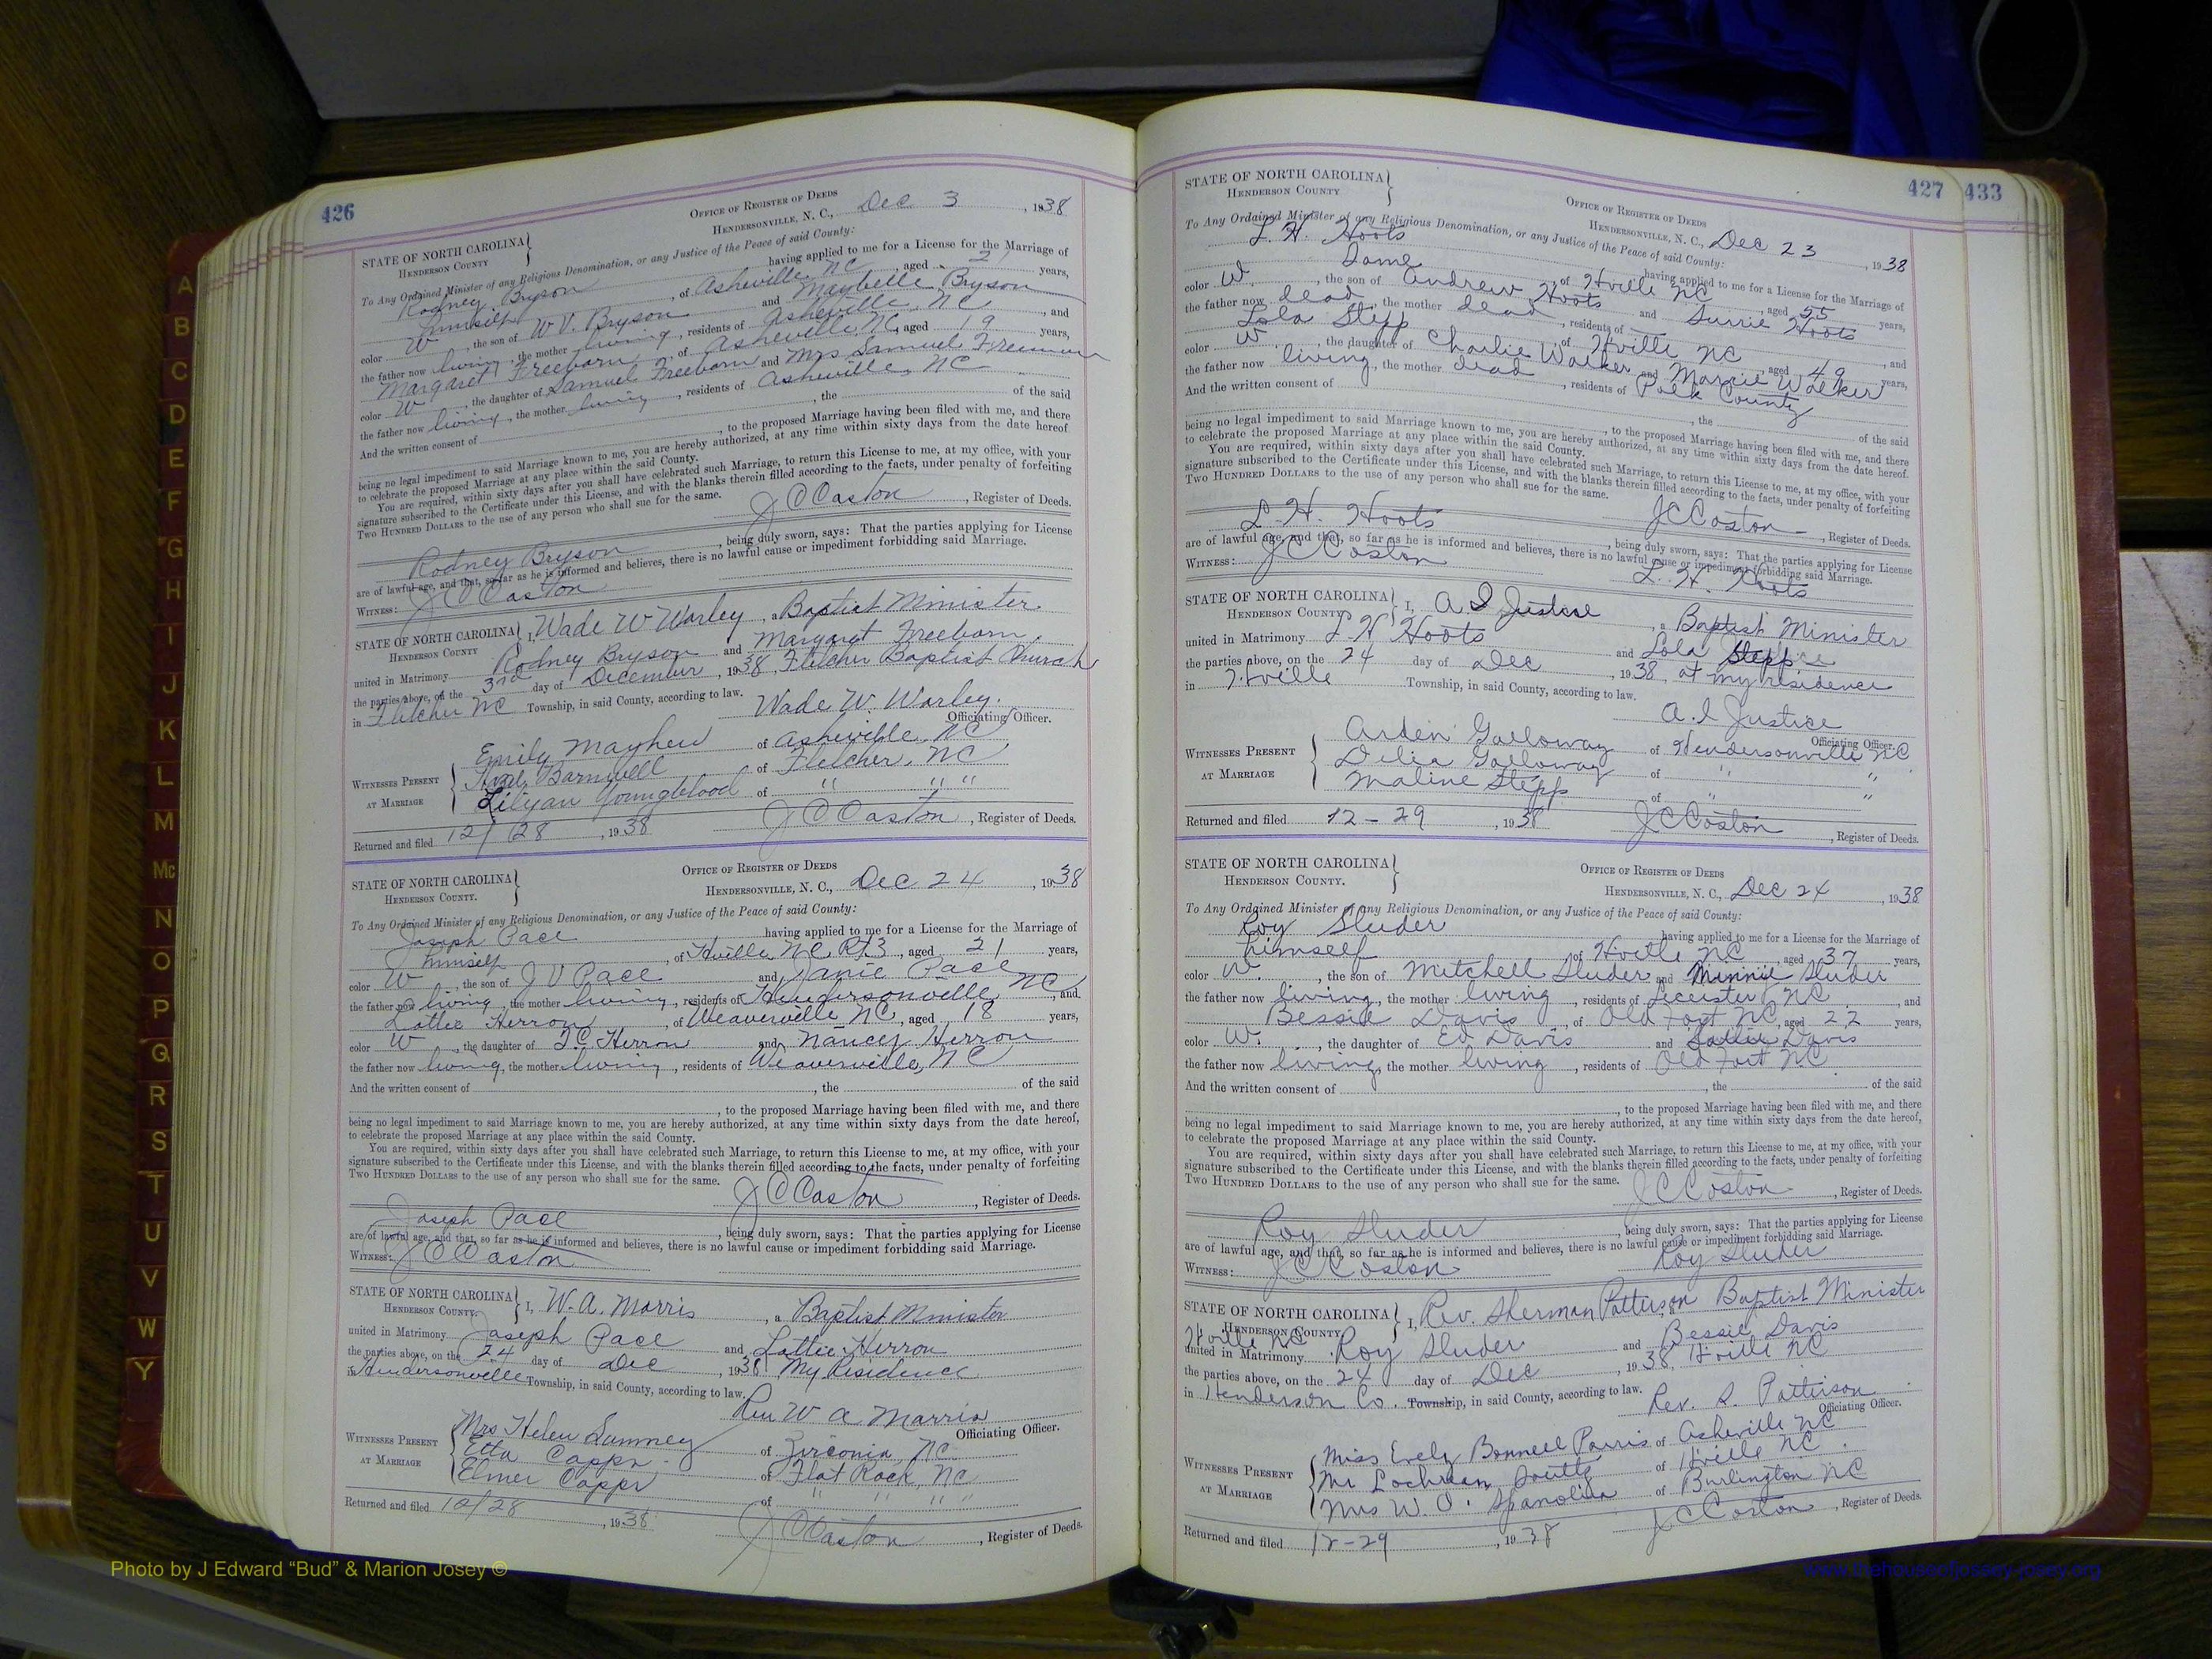 426
OFFICE OF REGISTER OF DEEDS
HENDERSONVILLE, N. C., Dec 3, 1938
STATE OF NORTH CAROLINA
HENDERSON COUNTY
To Any Ordained Minister of any Religious Denomination, or any Justice of the Peace of said County:
Rodney Bryson having applied to me for a License for the Marriage of
himself, of Asheville, NC, aged 21 years,
color W, the son of W V. Bryson and Maybelle Bryson
the father now living, the mother living, residents of Asheville, NC, and
Margaret Freeborn, of Asheville NC, aged 19 years,
color W, the daughter of Samuel Freeborn and Mrs Samuel Freeman
the father now living, the mother living, residents of Asheville, NC
And the written consent of , the of the said
, to the proposed Marriage having been filed with me, and there
being no legal impediment to said Marriage known to me, you are hereby authorized, at any time within sixty days from the date hereof
to celebrate the proposed Marriage at any place within the said County.
You are required, within sixty days after you shall have celebrated such Marriage, to return this License to me, at my office, with your
signature subscribed to the Certificate under this License, and with the blanks therein filled according to the facts, under penalty of forfeiting
TWO HUNDRED DOLLARS to the use of any person who shall sue for the same.
J C Coston, Register of Deeds.
Rodney Bryson, being duly sworn, says: That the parties applying for License
are of lawful age, and that, so far as he is informed and believes, there is no lawful cause or impediment forbidding said Marriage.
WITNESS: J C Coston
STATE OF NORTH CAROLINA
HENDERSON COUNTY
I, Wade W Worley, a Baptist Minister
united in Matrimony Rodney Bryson and Margaret Freeborn,
the parties above, on the 3rd day of December, 1938, Fletcher Baptist Church
in Fletcher NC Township, in said County, according to law.
Wade W. Worley.
Officiating Officer.
WITNESSES PRESENT
AT MARRIAGE
Emily Mayhew of Asheville, NC
Barnwell of Fletcher, NC
Lilyan Youngblood of " " "
Returned and filed 12/28, 1938 J C Coston, Register of Deeds.
OFFICE OF REGISTER OF DEEDS
HENDERSONVILLE, N. C., Dec 24, 1938
STATE OF NORTH CAROLINA
HENDERSON COUNTY.
To Any Ordained Minister of any Religious Denomination, or any Justice of the Peace of said County:
Joseph Pace having applied to me for a License for the Marriage of
himself, of Hville NC Rt3, aged 21 years,
color W, the son of J V Pace and Janie Pace
the father now living, the mother living, residents of Hendersonville, NC, and
Lottie Herron, of Weaverville NC, aged 18 years,
color W, the daughter of Herron and Nancy Herron
the father now living, the mother living, residents of Weaverville, NC
And the written consent of , the of the said
, to the proposed Marriage having been filed with me, and there
being no legal impediment to said Marriage known to me, you are hereby authorized, at any time within sixty days from the date hereof,
to celebrate the proposed Marriage at any place within the said County.
You are required, within sixty days after you shall have celebrated such Marriage, to return this License to me, at my office, with your
signature subscribed to the Certificate under this License, and with the blanks therein filled according to the facts, under penalty of forfeiting
TWO HUNDRED DOLLARS to the use of any person who shall sue for the same.
J C Coston, Register of Deeds.
Joseph Pace, being duly sworn, says: That the parties applying for License
are of lawful age, and that, so far as he is informed and believes, there is no lawful cause or impediment forbidding said Marriage.
WITNESS: J C Coston
STATE OF NORTH CAROLINA
HENDERSON COUNTY.
I, W. A. Morris, a Baptist Minister
united in Matrimony Joseph Pace and Lottie Herron
the parties above, on the 24 day of Dec, 1938 My Residence
in Hendersonville Township, in said County, according to law.
Rev W A Morris
Officiating Officer.
WITNESSES PRESENT
AT MARRIAGE
Mrs Helen
Etta Capps of Zirconia, NC
Elmer Capps of Flat Rock, NC
of " " " "
Returned and filed 12/28, 1938 J C Coston, Register of Deeds.
427
433
STATE OF NORTH CAROLINA
HENDERSON COUNTY
OFFICE OF REGISTER OF DEEDS
HENDERSONVILLE, N. C., Dec 23, 1938
To Any Ordained Minister of any Religious Denomination, or any Justice of the Peace of said County:
L. H. Hoots having applied to me for a License for the Marriage of
Same, of Hville NC, aged 55 years,
color W, the son of Andrew Hoots and Hoots
the father now dead, the mother dead, residents of , and
Lola Stepp, of Hville NC, aged 49 years,
color W, the daughter of Charlie Walker and Walker
the father now living, the mother dead, residents of Polk County
And the written consent of , the of the said
, to the proposed Marriage having been filed with me, and there
being no legal impediment to said Marriage known to me, you are hereby authorized, at any time within sixty days from the date hereof.
to celebrate the proposed Marriage at any place within the said County.
You are required, within sixty days after you shall have celebrated such Marriage, to return this License to me, at my office, with your
signature subscribed to the Certificate under this License, and with the blanks therein filled according to the facts, under penalty of forfeiting
TWO HUNDRED DOLLARS to the use of any person who shall sue for the same.
J C Coston, Register of Deeds.
L. H. Hoots, being duly sworn, says: That the parties applying for License
are of lawful age, and that, so far as he is informed and believes, there is no lawful cause or impediment forbidding said Marriage.
WITNESS: J C Coston L. H. Hoots
STATE OF NORTH CAROLINA
HENDERSON COUNTY
I, A I Justice, a Baptist Minister
united in Matrimony L. H Hoots and Lola Stepp
the parties above, on the 24 day of Dec, 1938, at my residence
in Hville Township, in said County, according to law.
A. I Justice
Officiating Officer.
WITNESSES PRESENT
AT MARRIAGE
Arden Galloway of Hendersonville NC
Delia Galloway of " "
Maline Stepp of " "
Returned and filed 12-29, 1938 J C Coston, Register of Deeds.
STATE OF NORTH CAROLINA
HENDERSON COUNTY.
OFFICE OF REGISTER OF DEEDS
HENDERSONVILLE, N. C., Dec 24, 1938
To Any Ordained Minister of any Religious Denomination, or any Justice of the Peace of said County:
Roy Sluder having applied to me for a License for the Marriage of
himself of Hville NC, aged 37 years,
color W., the son of Mitchell Sluder and Minnie Sluder
the father now living, the mother living, residents of Leicester NC, and
Bessie Davis, of Old Fort NC, aged 22 years,
color W., the daughter of Ed Davis and Davis
the father now living, the mother living, residents of Old Fort NC.
And the written consent of , the of the said
, to the proposed Marriage having been filed with me, and there
being no legal impediment to said Marriage known to me, you are hereby authorized, at any time within sixty days from the date hereof,
to celebrate the proposed Marriage at any place within the said County.
You are required, within sixty days after you shall have celebrated such Marriage, to return this License to me, at my office, with your
signature subscribed to the Certificate under this License, and with the blanks therein filled according to the facts, under penalty of forfeiting
TWO HUNDRED DOLLARS to the use of any person who shall sue for the same.
J C Coston, Register of Deeds.
Roy Sluder, being duly sworn, says: That the parties applying for License
are of lawful age, and that, so far as he is informed and believes, there is no lawful cause or impediment forbidding said Marriage.
WITNESS: J C Coston Roy Sluder
STATE OF NORTH CAROLINA
HENDERSON COUNTY
I, Rev. Sherman Patterson Baptist Minister
Hville NC
united in Matrimony Roy Sluder and Bessie Davis
the parties above, on the 24 day of Dec, 1938, Hville NC
in Henderson Co. Township, in said County, according to law.
Rev. S. Patterson
Officiating Officer.
WITNESSES PRESENT
AT MARRIAGE
Miss Evely Bonnell Parris of Asheville NC
Mr of Hville NC.
Mrs W. O. of Burlington NC
Returned and filed 12-29, 1938 J C Coston, Register of Deeds.
A
B
C
D
E
F
G
H
I
J
K
L
M
Mc
N
O
P
Q
R
S
T
U
V
W
Y
Photo by J Edward “Bud” & Marion Josey ©
www.thehouseofjossey-josey.org